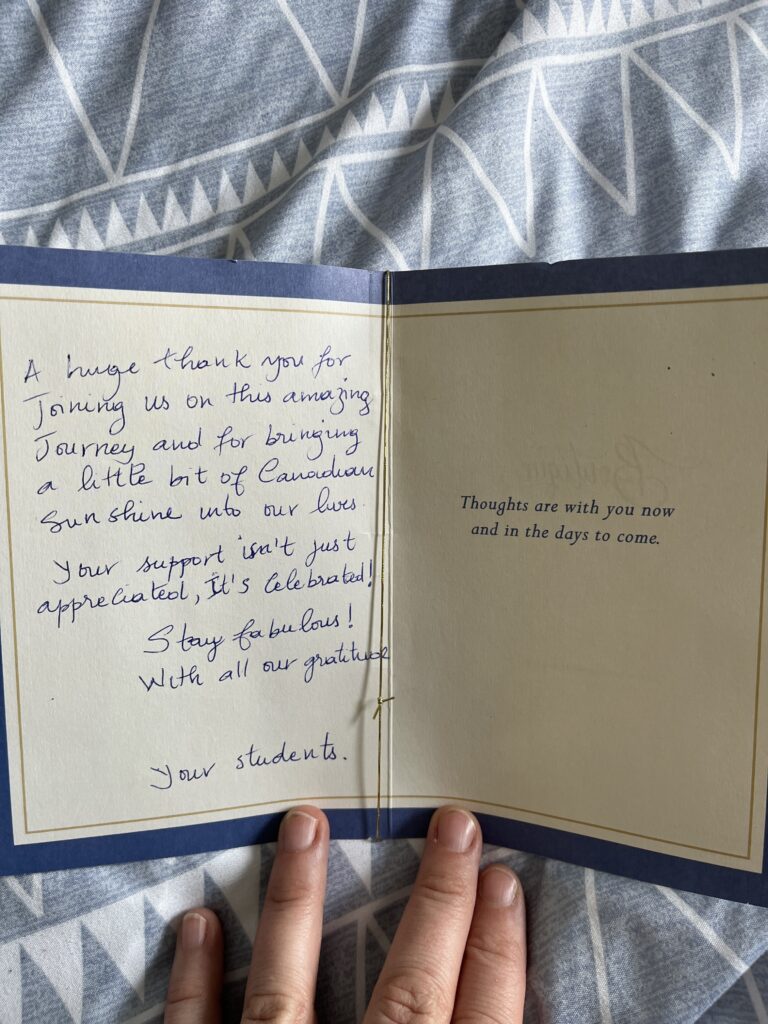 A huge thank you for
Joining us on this amazing
Journey and for bringing
a little bit of Canadian
Sunshine into our lives.
Your support isn't just
appreciated, It's Celebrated!
Stay fabulous!
With all our gratitude
Your students.
Thoughts are with you now
and in the days to come.